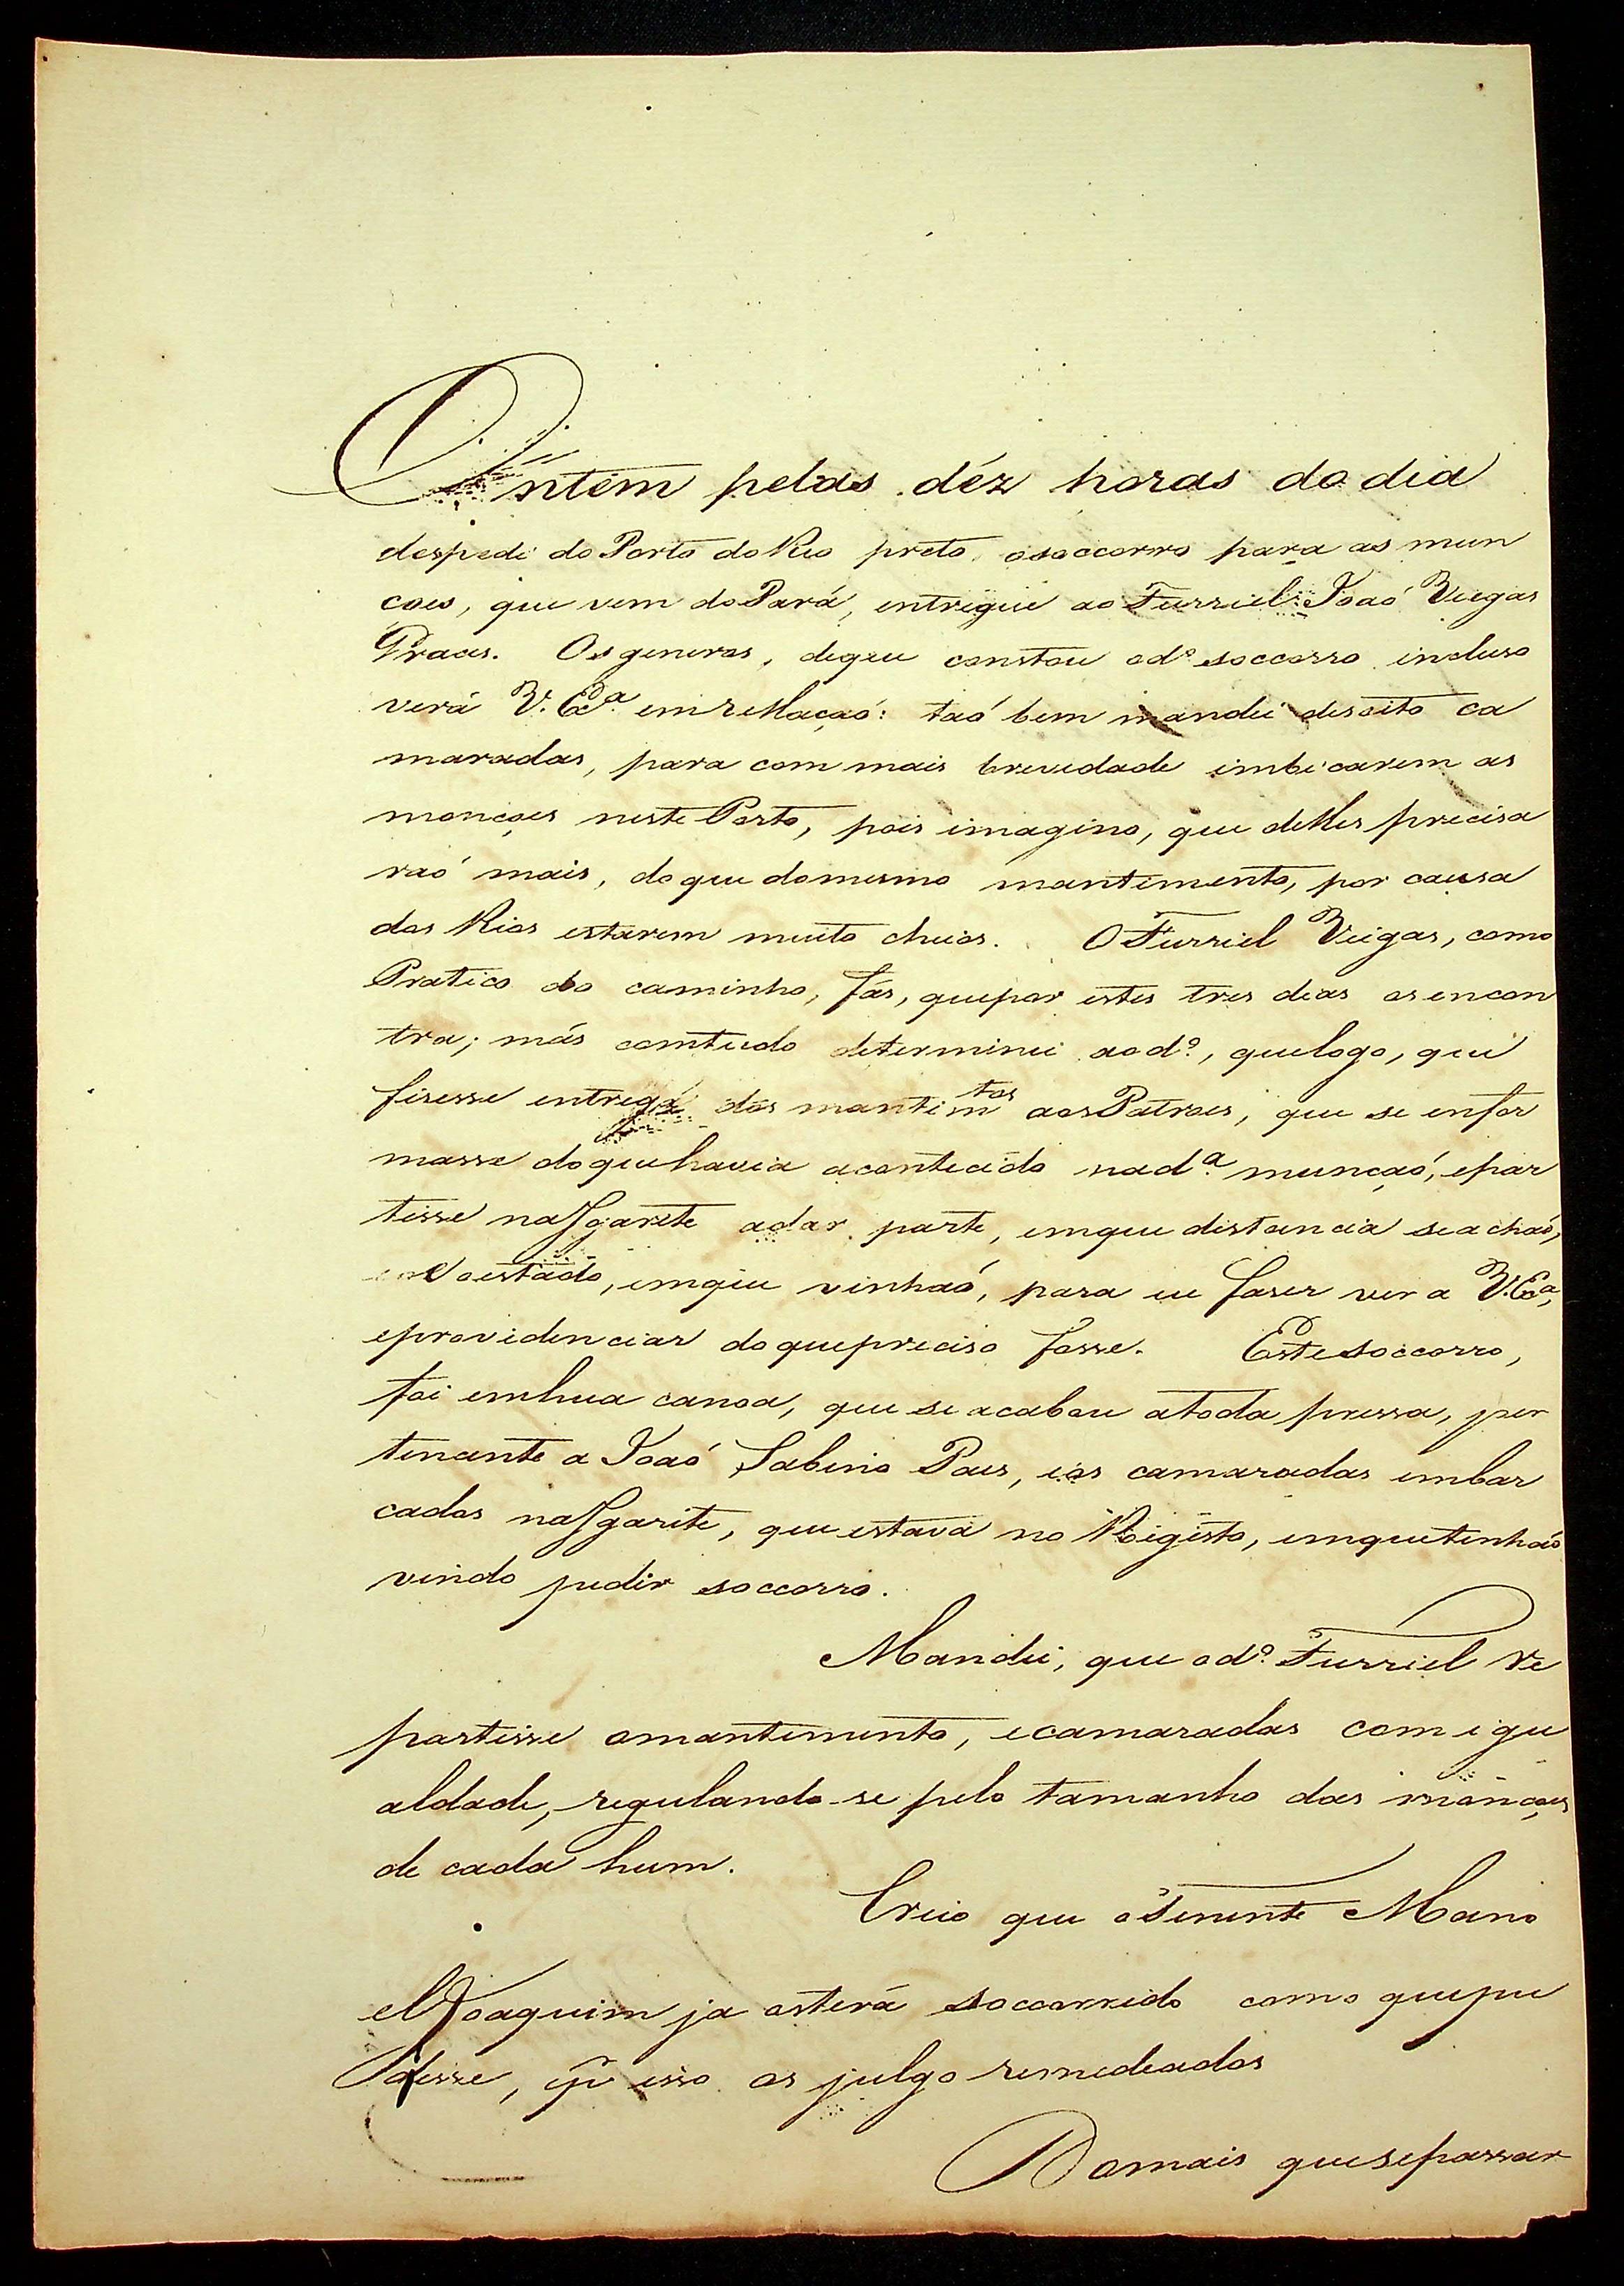 Ontem pelas déz horas do dia
despedi do Porto do Rio preto, osoccorro para as mun
çoes, que vem do Pará, entregue ao Furriel Joaõ Viegas
Os generos, deque constou od.º soccorro incluso
verá V. Ex.ª em rellaçaó: taó bem mandei desoito ca
maradas, para com mais brevidade imbicarem as
monçoes neste Porto, pois imagino, que delles precisa
raó mais, do que domesmo mantimento, por causa
dos Rios estarem muito cheios. O Furriel Veigas, como
Pratico do caminho, fás, quepor estes tres dias os encon
tra; más comtudo determinei aod.º, quelogo, que
fisesse entrega dos mantim.tos aos Patroes, que se enfor
masse doquehavia acontecido nad.ª munçaó, epar
tisse na Igarite adar parte, emque distancia seachaó,
oestado, emque vinhaó, para eu faser ver a V. Ex.ª,
eprovidenciar do quepreciso fosse. Este soccorro,
foi emhua canoa, que se acabou atoda pressa, per
tencente a Joaó Sabino Paes, eos camaradas embar
cados na Igarite, que estava no Rigisto, emquetinhaó
vindo pedir soccorro.
Mandei, que od.º Furriel re
partisse omantimento, ecamaradas com igu
aldade, regulando-se pelo tamanho das monçoes
de cada hum.
Creio que oTenente Mano
el Joaquim ja esterá soccorrido como quepu
desse, esso os julgo remedeados
Domais quesepassar